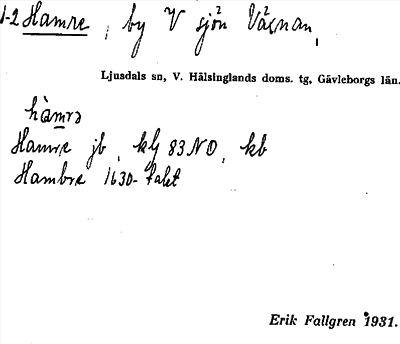 1-2 Hamre, by V sjön Vågnan,
Ljusdals sn, V. Hälsinglands doms. tg, Gävleborgs län.
hamrə
Hamre jb, kbj 83 NO, kb
Hambre 1630-talet
Erik Fallgren 1931.